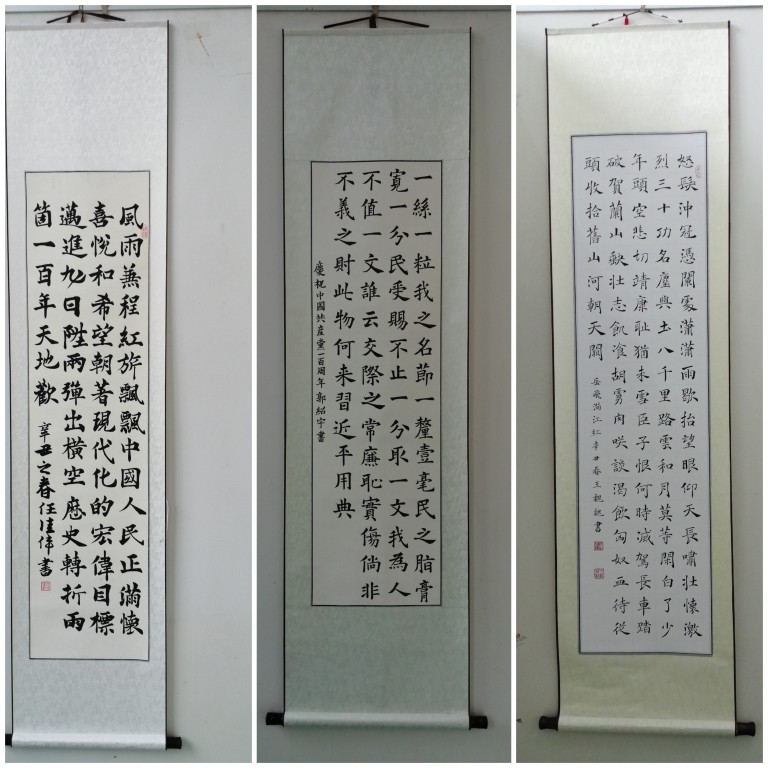 風雨兼程紅旂飄飄中國人民正滿懷
喜悅和希望朝著現代化的宏偉目標
邁進九日陞兩彈出橫空歷史轉折兩
箇一百年天地歡
辛丑之春任佳偉書
一絲一粒我之名節一釐壹毫民之脂膏
寬一分民受賜不止一分取一文我為人
不值一文誰云交際之常廉恥實傷倘非
不義之財此物何来習近平用典
慶祝中國共産黨一百周年郭紹宇書
怒髮沖冠憑闌處瀟瀟雨歇抬望眼仰天長嘯壯懷激
烈三十功名塵與土八千里路雲和月莫等閑白了少
年頭空悲切靖康耻猶未雪臣子恨何時滅駕長車踏
破賀蘭山缺壯志飢飡胡虜肉咲談渴飲匈奴血待從
頭收拾舊山河朝天闕
岳飛滿江紅辛丑春王書